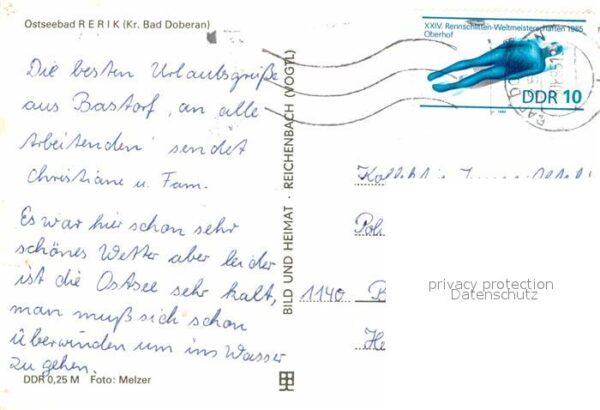 Ostseebad R E R I K (Kr. Bad Doberan)
Die besten Urlaubsgrüße
aus Bastorf, an alle
Arbeitenden sendet
Christiane u. Fam.
Es war hier schon sehr
schönes Wetter aber leider
ist die Ostsee sehr kalt,
man muß sich schon
überwinden um ins Wasser
zu gehen.
DDR 0,25 M Foto: Melzer
BILD UND HEIMAT · REICHENBACH (VOGTL)
XXIV. Rennschlitten-Weltmeisterschaften 1985
Oberhof
DDR 10
1140 B
privacy protection
Datenschutz